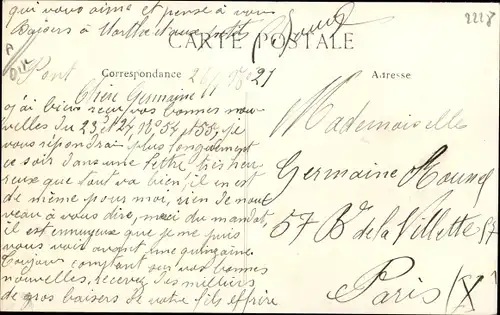 qui vous aime et pense à vous
Baisers à Marthe et aux petits
CARTE POSTALE
2228
Pont
Correspondance
Adresse
Chère Germaine
J'ai bien reçu vos bonnes nou
velles du 23 et 24, No 54 et 55, je
vous répondrai plus longuement
ce soir dans une lettre, très heu
reux que tout va bien, il en est
de même pour moi, rien de nou
veau à vous dire, merci du mandat,
il est ennuyeux que je ne puis
vous voir avant une quinzaine.
Toujours comptant sur vos bonnes
nouvelles, recevez des milliers
de gros baisers de votre fils
Mademoiselle
Germaine
57 Bd de la Villette 57
Paris (X